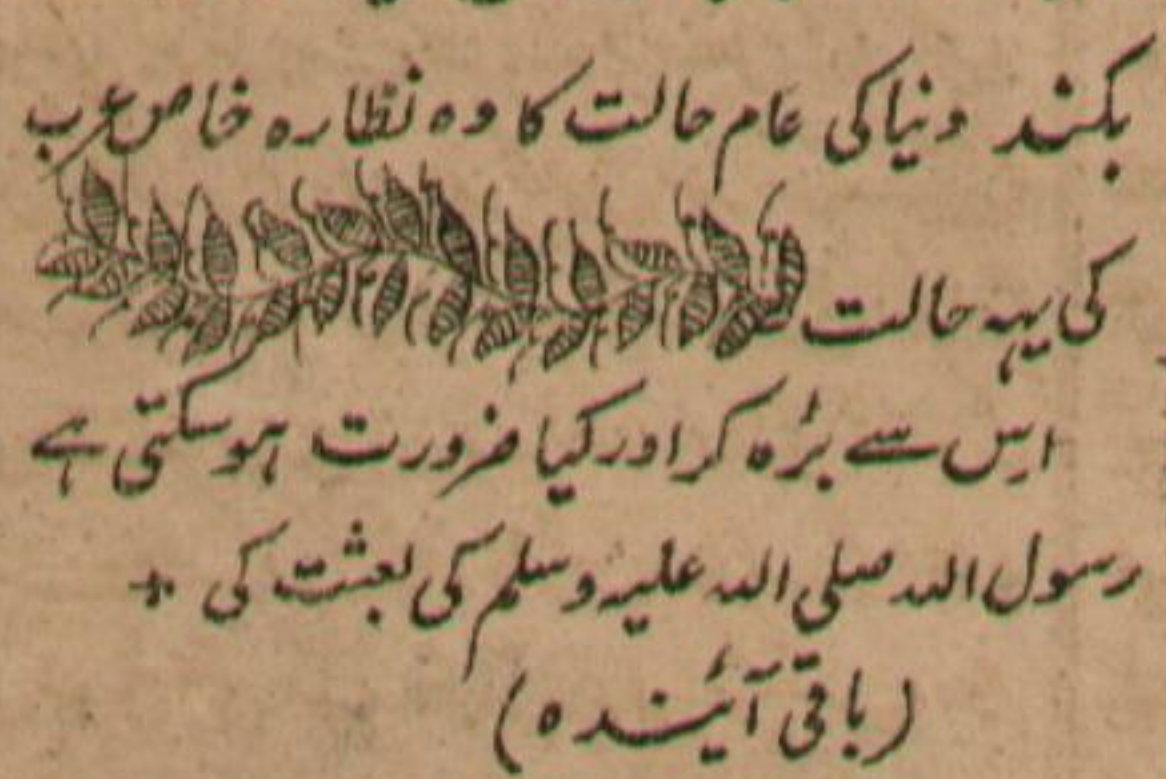 بکشند دنیا کی عام حالت کا وہ نظارہ خاص عرب
کی یہہ حالت
اس سے بڑہ کر اور کیا ضرورت ہو سکتی ہے
رسول اللہ صلی اللہ علیہ وسلم کی بعثت کی +
(باقی آئیندہ)